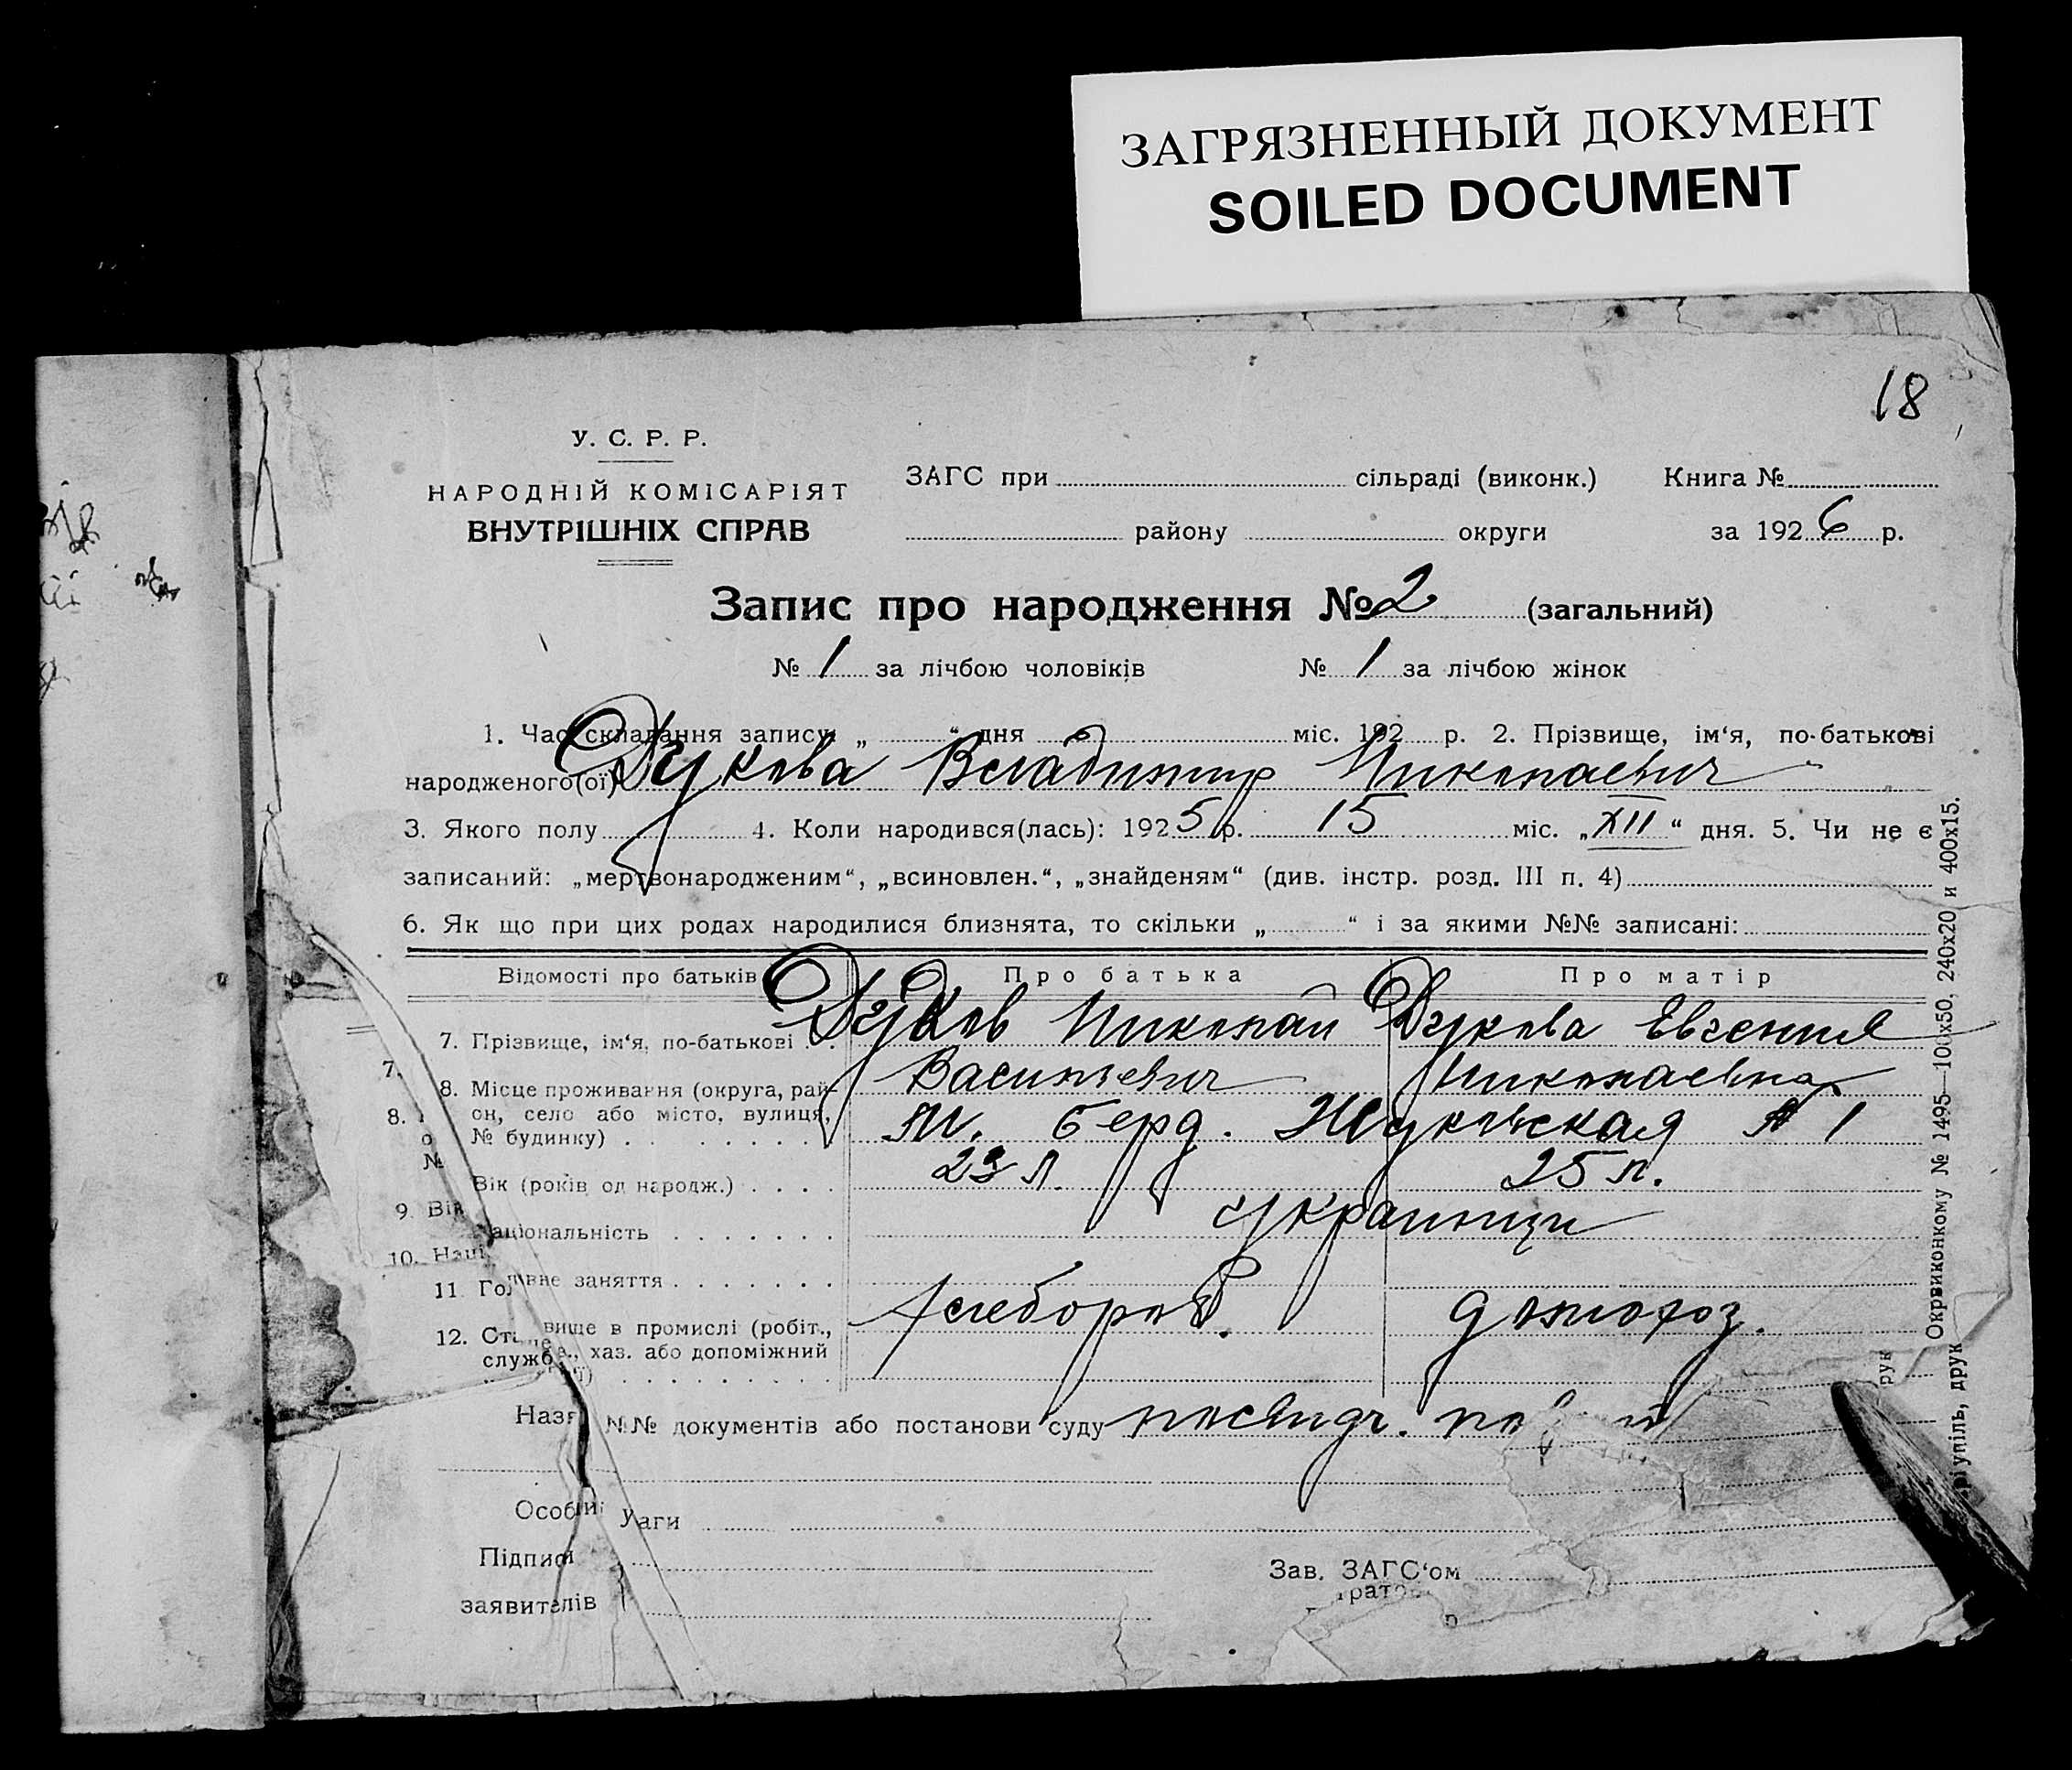 ЗАГРЯЗНЕННЫЙ ДОКУМЕНТ
SOILED DOCUMENT
18
У. С. Р. Р.
НАРОДНІЙ КОМІСАРІЯТ
ВНУТРІШНІХ СПРАВ
ЗАГС при сільраді (виконк.) Книга №
району округи за 1926 р.
Запис про народження № 2 (загальний)
№ 1 за лічбою чоловіків № 1 за лічбою жінок
1. Час складання запису „ “ дня міс. 192 р. 2. Прізвище, ім‘я, по-батькові
народженого(ої) Дукова Владимир Николаевич
3. Якого полу 4. Коли народився(лась): 1925 р. 15 міс. „XII“ дня. 5. Чи не є
записаний: „мертвонародженим“, „всиновлен.“, „знайденям“ (див. інстр. розд. III п. 4)
6. Як що при цих родах народилися близнята, то скільки „ “ і за якими №№ записані:
Відомості про батьків Про батька Про матір
7. Прізвище, ім‘я, по-батькові Дуков Николай Дукова Евгения
Васильевич Николаевна
7.
8. Місце проживання (округа, рай-
он, село або місто, вулиця,
№ будинку) м. Берд. № 1
8.
№
Вік (років од народж.) 23 л. 25 л.
9. Вік
аціональність украинцы
10. Наці
11. Головне заняття
12. Становище в промислі (робіт.,
служб., хаз. або допоміжний
домохоз.
Назв №№ документів або постанови суду
Особи уваги
Підписи
заявителів
Зав. ЗАГС‘ом
Окрвиконкому № 1495—100x50, 240x20 и 400x15.